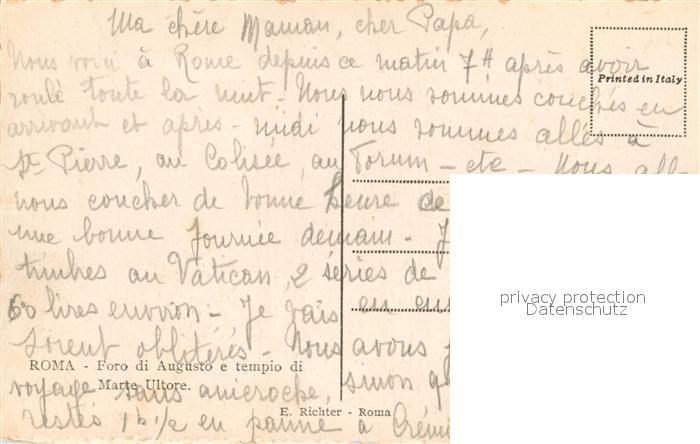 Ma chère Maman, cher Papa,
Nous voici à Rome depuis ce matin 7H après avoir
roulé toute la nuit - Nous nous sommes couchés en
arrivant et après-midi nous sommes allés à
St Pierre, au Colisée, au Forum - etc - Nous all
nous coucher de bonne heure ce
une bonne journée demain - J
timbres au Vatican, 2 séries de
60 lires environ - Je vais en
soient oblitérés - Nous avons
voyage sans anicroche, sinon q
restés 1h 1/2 en panne à Crém
Printed in Italy
ROMA - Foro di Augusto e tempio di
Marte Ultore.
E. Richter - Roma
privacy protection
Datenschutz